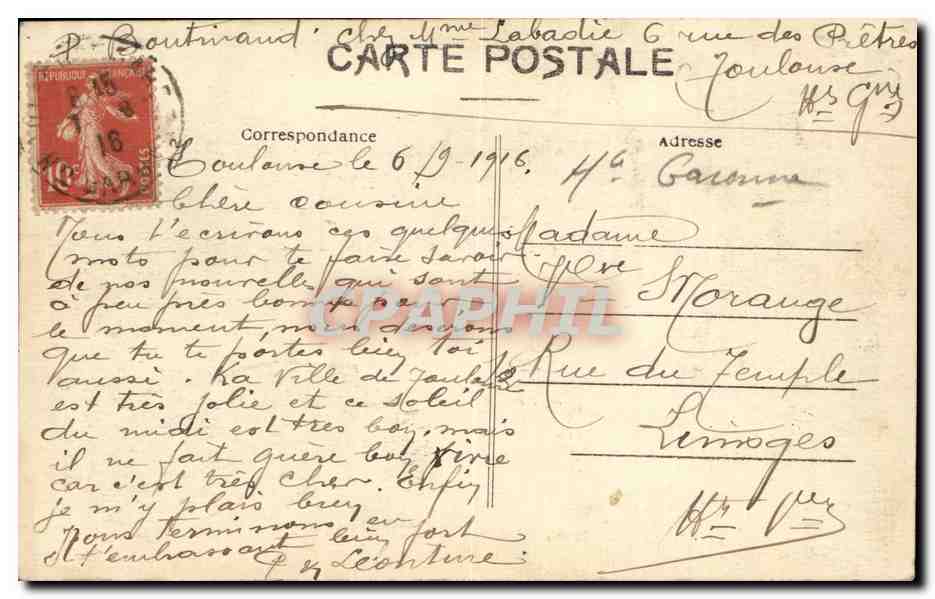 P. Boutinaud chez Mme Labadie 6 rue des Prêtres
Toulouse
Hte Gne
CARTE POSTALE
REPUBLIQUE FRANÇAISE
10c
POSTES
Correspondance
Adresse
Toulouse le 6/9-1916.
Hte Garonne
Chère cousine
Nous t'ecrivons ces quelques
mots pour te faire savoir
de nos nouvelles qui sont
à peu près bonne pour
le moment, nous desirons
que tu te portes bien toi
aussi. La Ville de Toulouse
est très jolie et ce soleil
du midi est très bon, mais
il ne fait guère bon vivre
car c'est très cher. Enfin
je m'y plais bien
Nous terminons en
t'embrassant bien fort
P et Léontine
Madame
Vve Morange
18 Rue du Temple
Limoges
Hte Vne
CPAPHIL